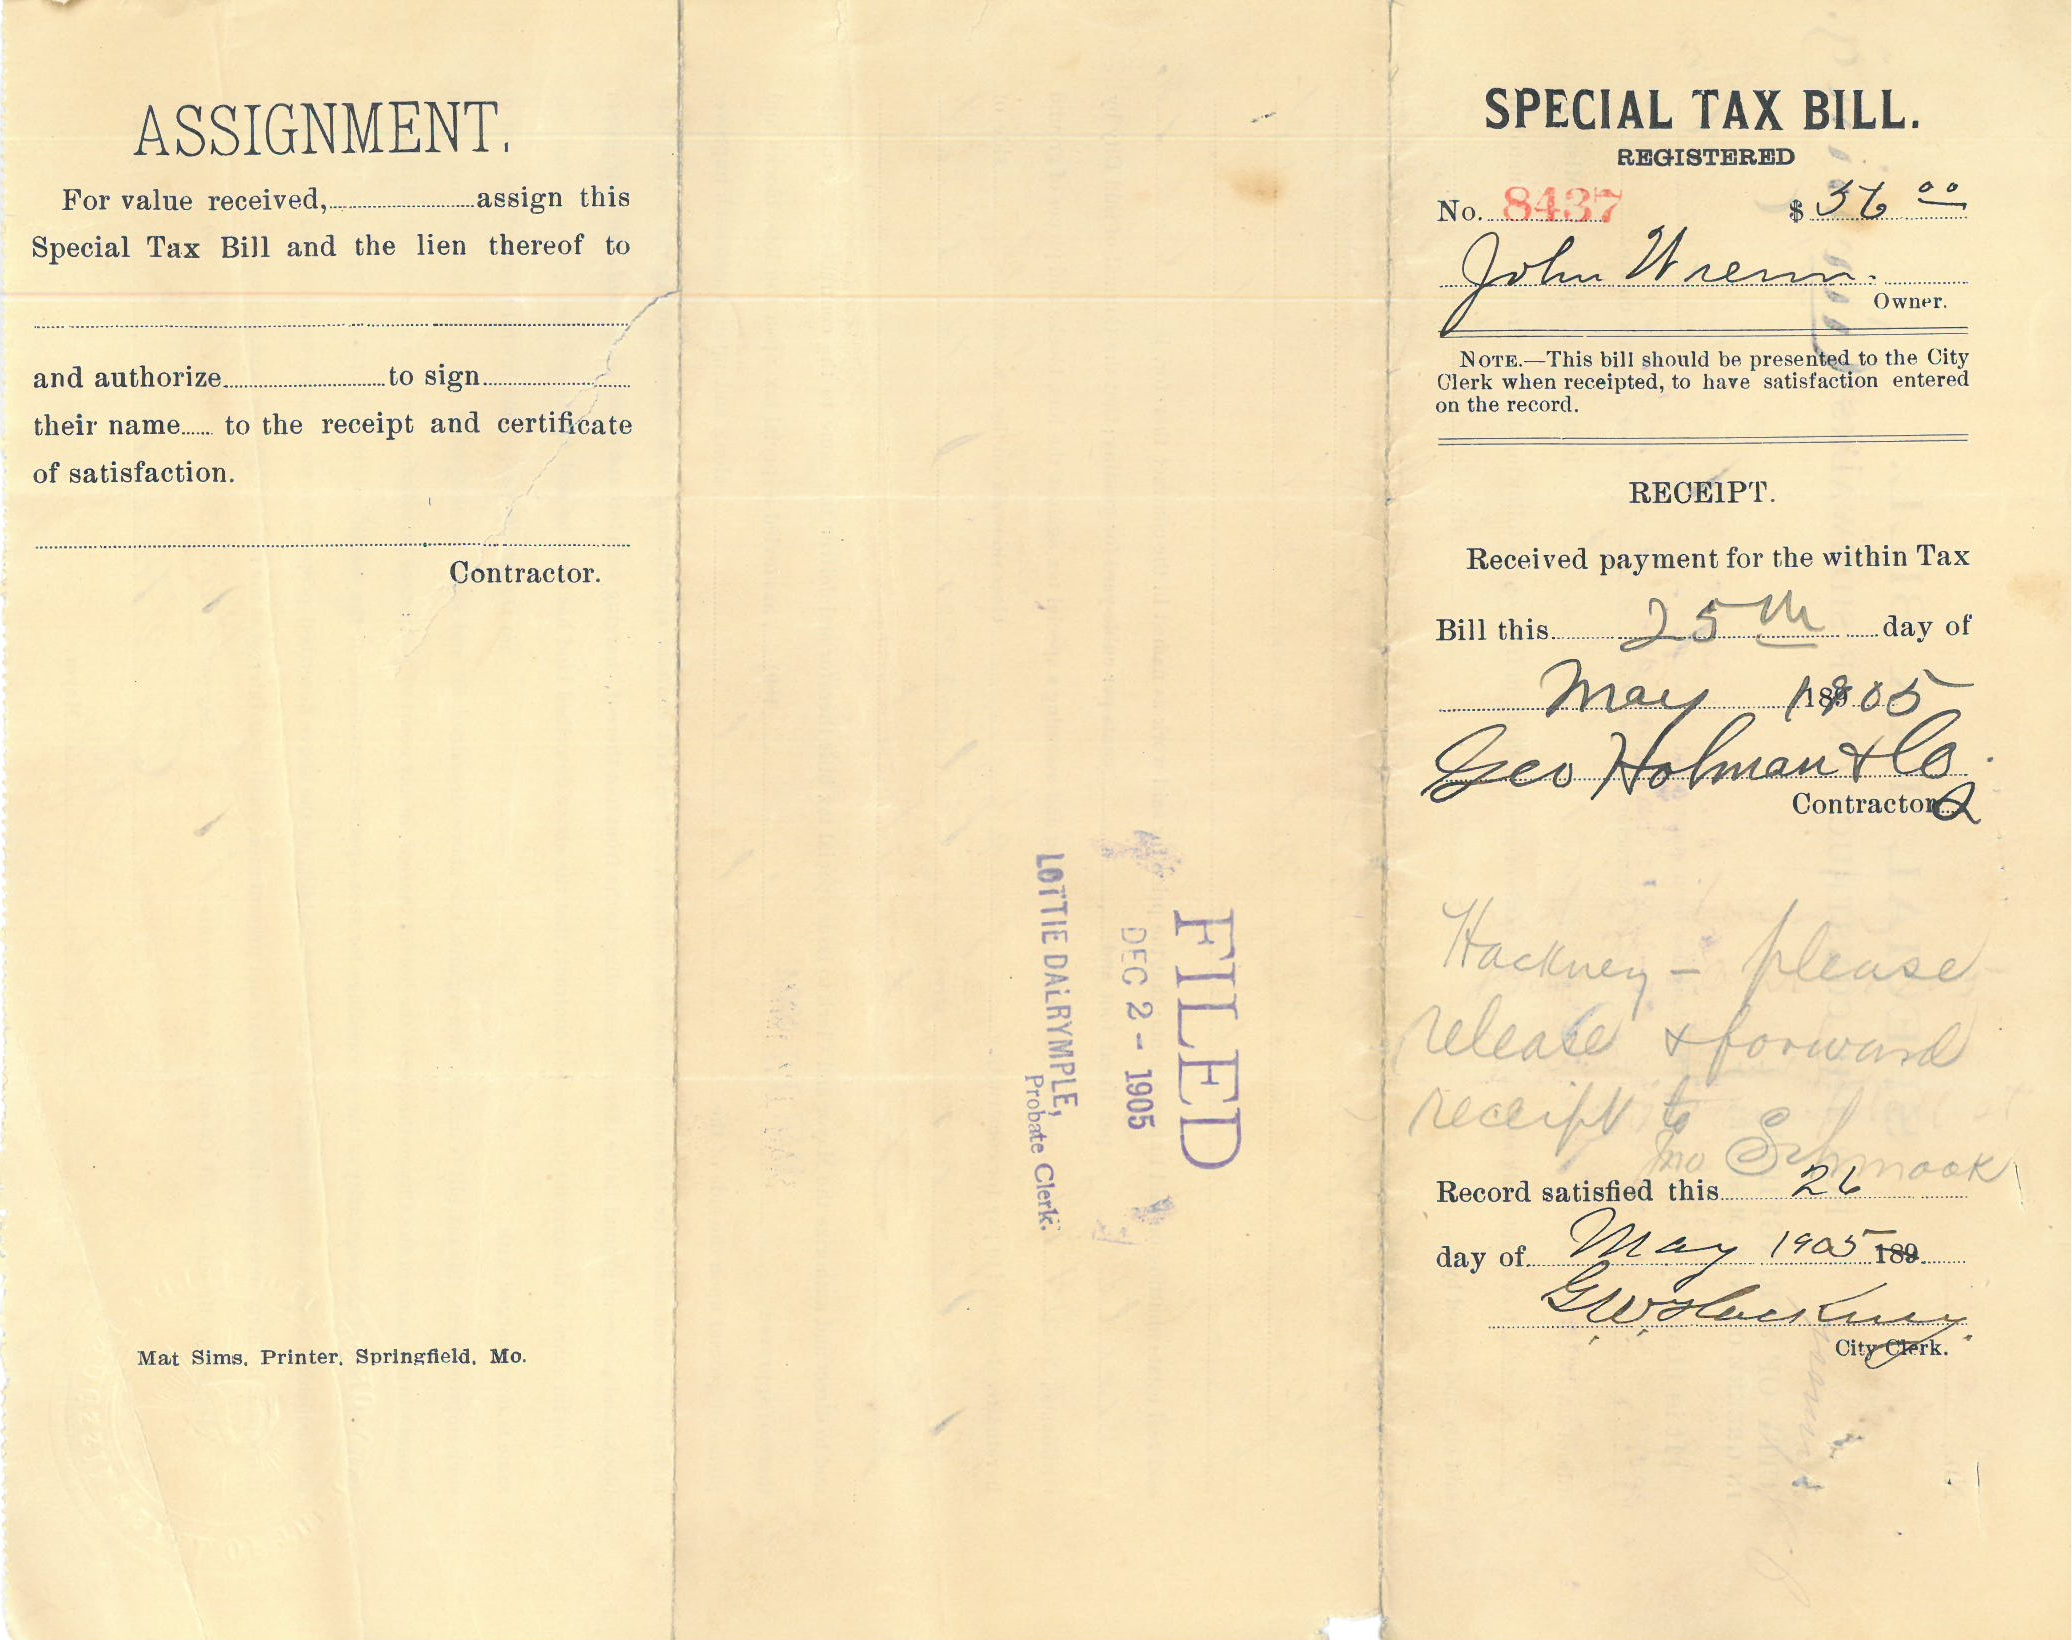 ASSIGNMENT.
For value received, assign this
Special Tax Bill and the lien thereof to
and authorize to sign
their name to the receipt and certificate
of satisfaction.
Contractor.
Mat Sims, Printer, Springfield, Mo.
FILED
DEC 2 - 1905
LOTTIE DALRYMPLE,
Probate Clerk.
SPECIAL TAX BILL.
REGISTERED
No. 8437 $ 36 00
John Wrenn.
Owner.
NOTE.—This bill should be presented to the City
Clerk when receipted, to have satisfaction entered
on the record.
RECEIPT.
Received payment for the within Tax
Bill this 25th day of
May 1905
Geo Holman & Co.
Contractor
Hackney - please
release & forward
receipt to
Jno Schmook
Record satisfied this 26
day of May 1905 189
G.W. Hackney.
City Clerk.